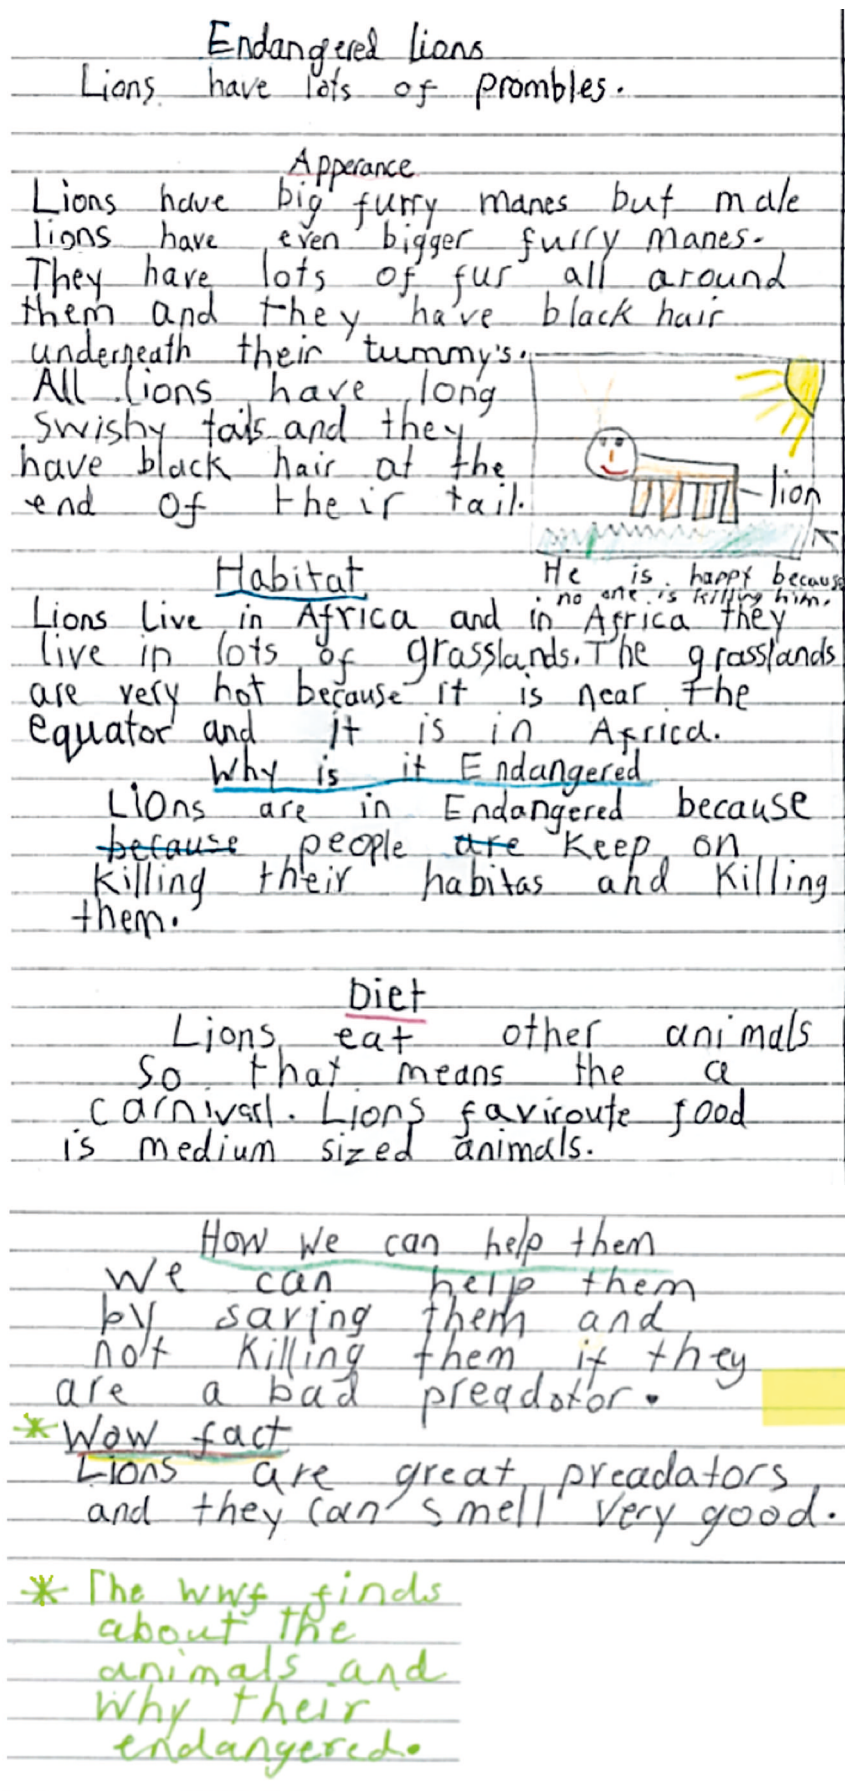 Endangered lions
Lions have lots of prombles.
Apperance
Lions have big furry manes but male
lions have even bigger furry manes.
They have lots of fur all around
them and they have black hair
underneath their tummy's.
All lions have long
swishy tails and they
have black hair at the
end of their tail.
lion
He is happy because
no one is killing him.
Habitat
Lions live in Africa and in Africa they
live in lots of grasslands. The grasslands
are very hot because it is near the
equator and it is in Africa.
Why is it Endangered
Lions are in Endangered because
because people are keep on
killing their habitas and killing
them.
Diet
Lions eat other animals
so that means the a
carnivarl. Lions faviroute food
is medium sized animals.
How we can help them
We can help them
by saving them and
not killing them if they
are a bad preadotor.
* Wow fact
Lions are great preadators
and they can smell very good.
* The wwf finds
about the
animals and
why their
endangered.